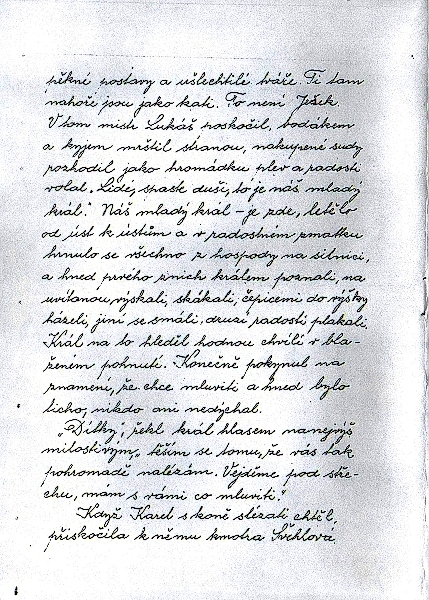 pěkné postavy a ušlechtilé tváře. Ti tam
nahoře jsou jako kati. To není Ješek.
V tom mistr Lukáš poskočil, bodákem
a kyjem mrštil stranou, nakupené sudy
rozhodil jako hromádku plev a radostí
volal „Lidé, spaste duši, to je náš mladý
král." Náš mladý král – je zde, letělo
od úst k ústům a v radostném zmatku
hrnulo se všechno z hospody na silnici,
a hned prvého z nich králem poznali, na
uvítanou, výskali, skákali, čepicemi do výšky
házeli, jiní se smáli, druzí radostí plakali.
Král na to hleděl hodnou chvíli v bla-
ženém pohnutí. Konečně pokynul na
znamení, že chce mluviti a hned bylo
ticho, nikdo ani nedýchal.
„Dítky", řekl král hlasem nanejvýš
milostivým, „těším se tomu, že vás tak
pohromadě nalézám. Vejděme pod stře-
chu, mám s vámi co mluviti."
Když Karel s koně slézati chtěl,
přiskočila k němu kmotra Švehlová